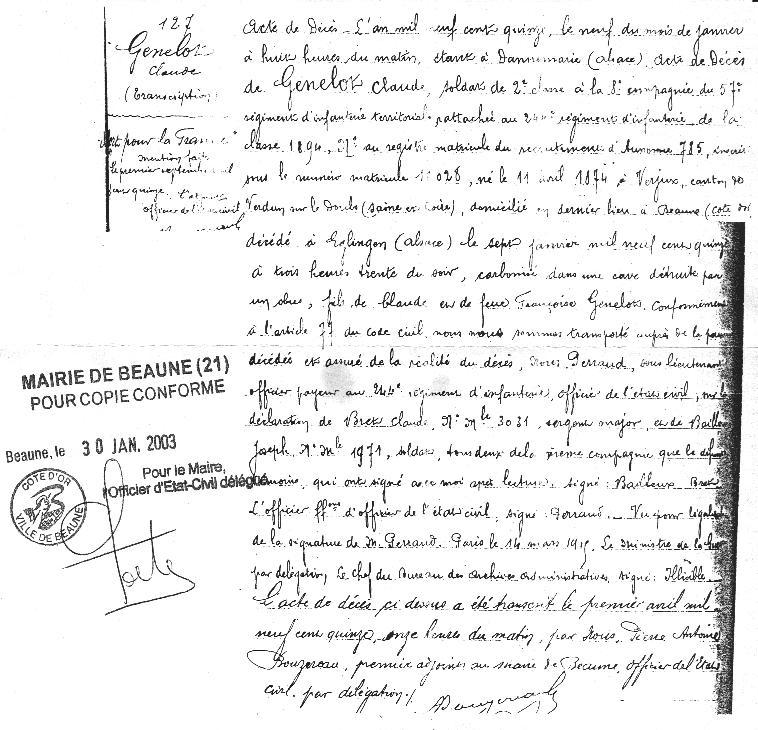 127
Genelot
Claude
(Transcription)
pour la France"
mention faite
le premier septembre mil
neuf cent quinze. L'
officier de l'état civil
Acte de Décès _ L'an mil neuf cent quinze, le neuf du mois de janvier
à huit heures du matin, étant à Dannemarie (Alsace). Acte de Décès
de Genelot Claude, soldat de 2e classe à la 8e compagnie du 57e
régiment d'infanterie territoriale rattachée au 244e régiment d'infanterie de la
classe 1894, au registre matricule du recrutement d'Auxonne 785, inscrit
sous le numéro matricule 028, né le 11 avril 1874 à Verjux, canton de
Verdun sur le Doubs (Saône et Loire), domicilié en dernier lieu à Beaune (Côte d'Or
décédé à Eglingen (Alsace) le sept janvier mil neuf cent quinze
à trois heures trente du soir, carbonisé dans une cave détruite par
un obus, fils de Claude et de feue Françoise Genelot. Conformément
à l'article 77 du code civil, nous nous sommes transporté auprès de la
décédée et assuré de la réalité du décès, Nous, Perraud, sous lieutenant
officier payeur au 244e régiment d'infanterie, officier de l'état civil, sur la
déclaration de Bret Claude, No Mle 3031, sergent major, et de
Joseph, No Mle 1971, soldat, tous deux de la compagnie que le
témoins, qui ont signé avec moi après lecture. Signé: Bailleux Bret
L'officier ffons d'officier de l'état civil, signé: Perraud. _ Vu pour
de la signature de M. Perraud. Paris le 14 mars 1915. Le Ministre de la
par délégation, Le Chef du Bureau des Archives Administratives, signé: Illisible._
L'acte de décès ci dessus a été transcrit le premier avril mil
neuf cent quinze, onze heures du matin, par Nous, Pierre Antoine
Bouzereau, premier adjoint au maire de Beaune, officier de l'état
civil par délégation./.
MAIRIE DE BEAUNE (21)
POUR COPIE CONFORME
Beaune, le 30 JAN. 2003
Pour le Maire,
l'Officier d'Etat-Civil délégué
COTE D'OR
VILLE DE BEAUNE